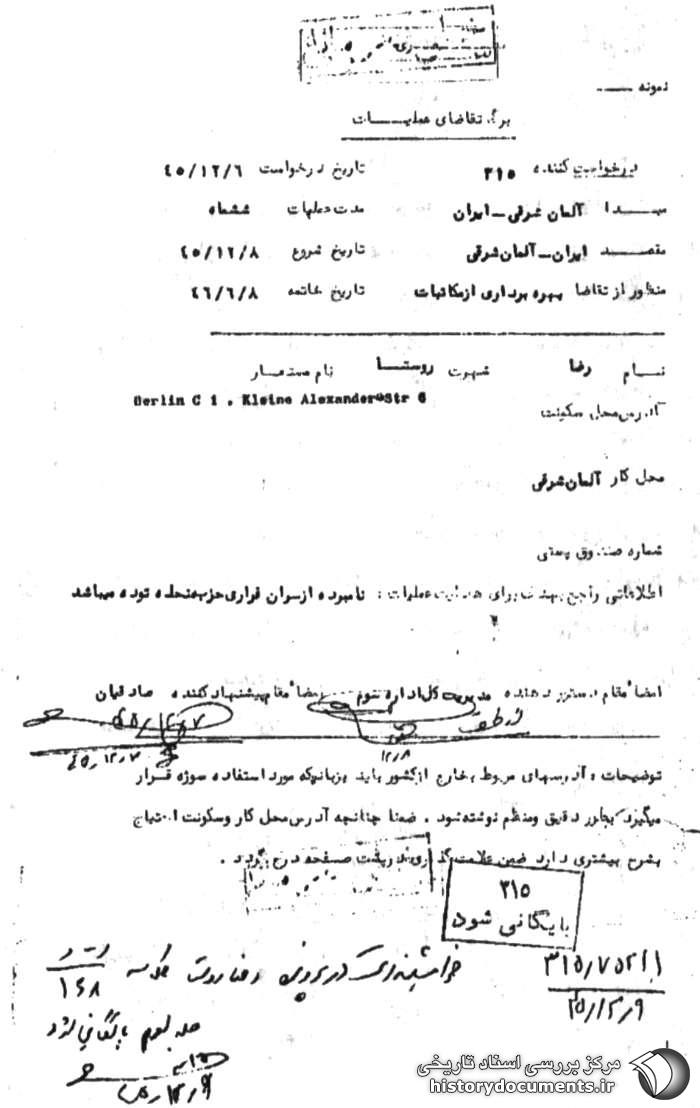 نمونه
برگ تقاضای عملیات
درخواست کننده ۳۱۵ تاریخ درخواست ۴۵/۱۲/۶
مبدا آلمان شرقی - ایران مدت عملیات ششماه
مقصد ایران - آلمان شرقی تاریخ شروع ۴۵/۱۲/۸
منظور از تقاضا بهره برداری از مکاتبات تاریخ خاتمه ۴۶/۶/۸
نام رضا شهرت روستا نام مستعار
Berlin C 1 , Kleine Alexander Str 6
آدرس محل سکونت
محل کار آلمان شرقی
شماره صندوق پستی
اطلاعاتی راجع بهدف برای هدایت عملیات : نامبرده از سران فراری حزب منحله توده میباشد
امضاء مقام دستور دهنده مدیریت کل اداره سوم امضاء مقام پیشنهاد کننده صادقیان
۴۵/۱۲/۷
۱۲/۸
۴۵/۱۲/۷
توضیحات : آدرسهای مربوط بخارج از کشور باید بزبانیکه مورد استفاده سوژه قرار
میگیرد بطور دقیق ومنظم نوشته شود . ضمنا چنانچه آدرس محل کار وسکونت احتیاج
بشرح بیشتری دارد ضمن علامت گذاری در پشت صفحه درج گردد .
۳۱۵
بایگانی شود
۴۵/۱۲/۹
بایگانی شود
۴۵/۱۲/۹
مرکز بررسی اسناد تاریخی
historydocuments.ir